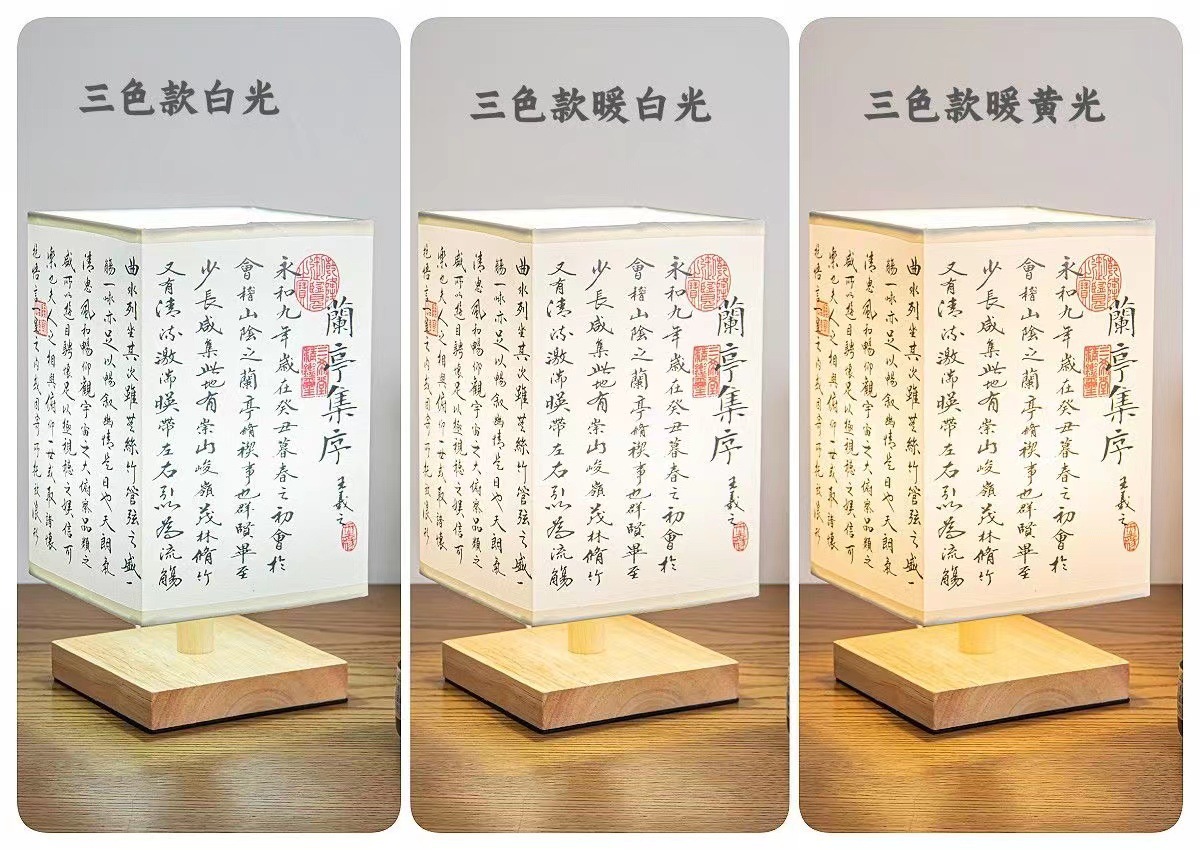 三色款白光
蘭亭集序
王羲之
永和九年歲在癸丑暮春之初會於
會稽山陰之蘭亭脩禊事也群賢畢至
少長咸集此地有崇山峻嶺茂林脩竹
又有清流激湍暎帶左右引以為流觴
曲水列坐其次雖無絲竹管弦之盛一
觴一詠亦足以暢敘幽情是日也天朗氣
清惠風和暢仰觀宇宙之大俯察品類之
盛所以遊目騁懷足以極視聽之娛信可
樂也夫人之相與俯仰一世或取諸懷
抱悟言之內或因寄所託放浪形
三色款暖白光
蘭亭集序
王羲之
永和九年歲在癸丑暮春之初會於
會稽山陰之蘭亭脩禊事也群賢畢至
少長咸集此地有崇山峻嶺茂林脩竹
又有清流激湍暎帶左右引以為流觴
曲水列坐其次雖無絲竹管弦之盛一
觴一詠亦足以暢敘幽情是日也天朗氣
清惠風和暢仰觀宇宙之大俯察品類之
盛所以遊目騁懷足以極視聽之娛信可
樂也夫人之相與俯仰一世或取諸懷
抱悟言之內或因寄所託放浪形
三色款暖黄光
蘭亭集序
王羲之
永和九年歲在癸丑暮春之初會於
會稽山陰之蘭亭脩禊事也群賢畢至
少長咸集此地有崇山峻嶺茂林脩竹
又有清流激湍暎帶左右引以為流觴
曲水列坐其次雖無絲竹管弦之盛一
觴一詠亦足以暢敘幽情是日也天朗氣
清惠風和暢仰觀宇宙之大俯察品類之
盛所以遊目騁懷足以極視聽之娛信可
樂也夫人之相與俯仰一世或取諸懷
抱悟言之內或因寄所託放浪形